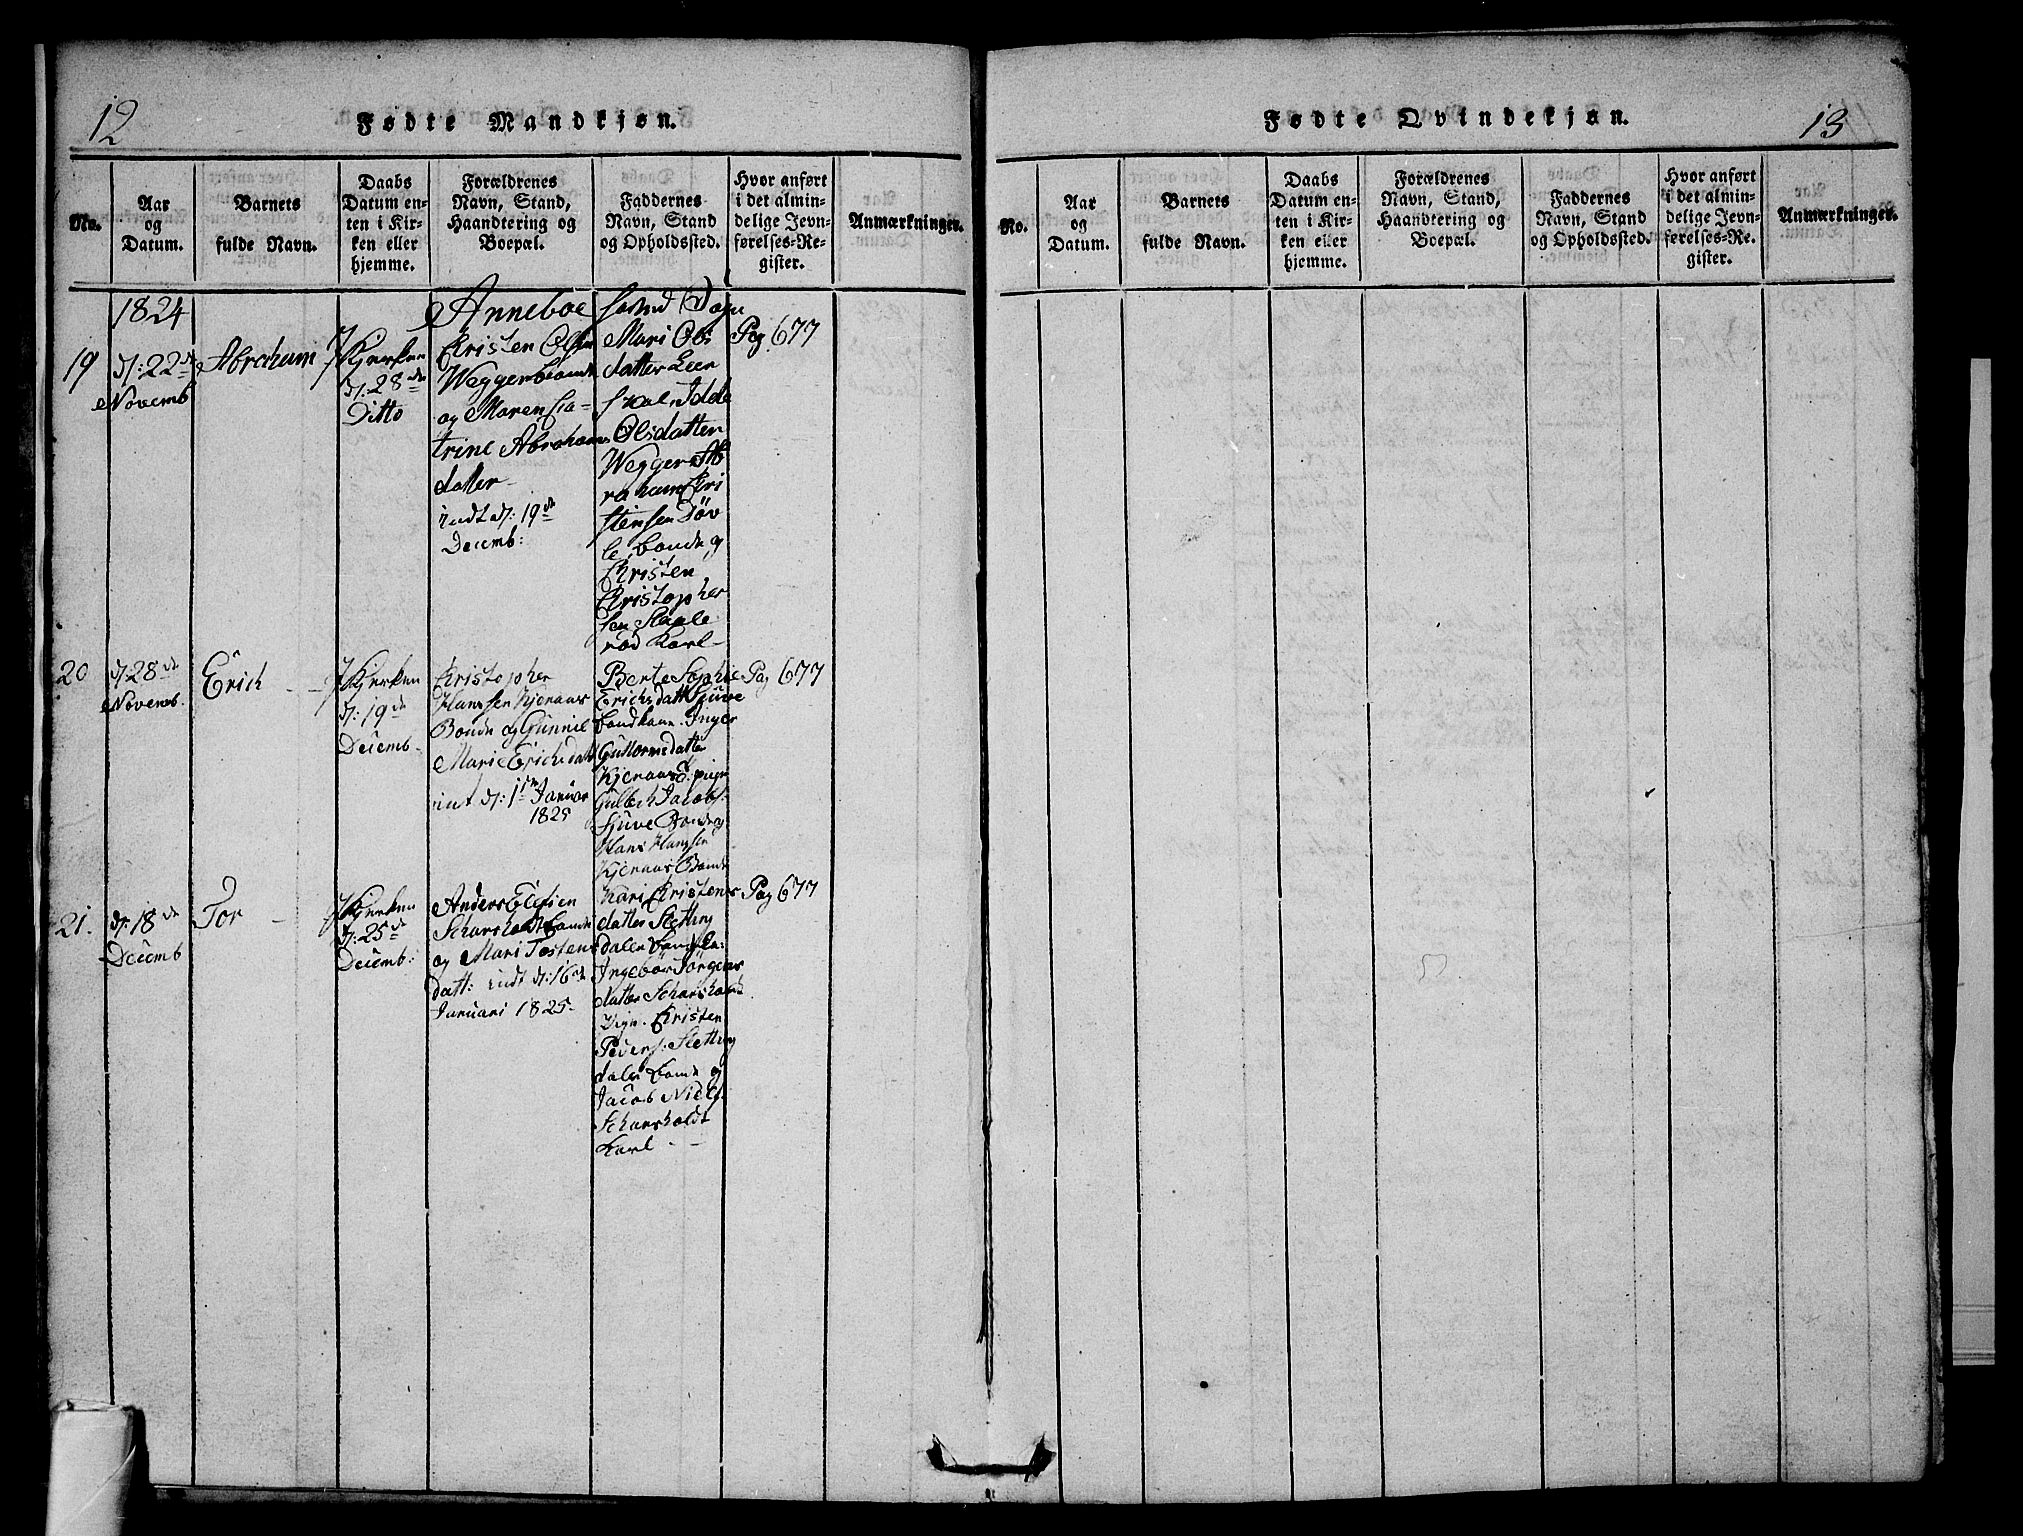 12
Fødte Mandkjøn.
No.
Aar
og
Datum.
Barnets
fulde Navn.
Daabs
Datum en-
ten i Kir-
ken eller
hjemme.
Forældrenes
Navn, Stand,
Haandtering og
Boepæl.
Faddernes
Navn, Stand
og Opholdssted.
Hvor anført
i det almin-
delige Jevn-
førelses-Re-
gister.
Anmærkninger.
Anneboe Sogn
1824
19
d: 22de
Novemb
Abraham
I Kjerken
d: 28de
Ditto
Christen Olsen
Wegger bonde
og Maren Ca-
trine Abrahams
datter
indt d: 19de
Decemb:
Mari Ols
datter Lier
Olsdatter
Wegger Ab
raham Chri
stensen Døv
le, bonde og
Christen
Christopher
sen
rød Karl
Pag 677
20
d: 28de
Novemb.
Erich
I Kjerken
d: 19de
Decemb
Christopher
Hanssen Kjeraas
Bonde og Gunnil
Mari Erichsdatt
int d: 1ste Januar
1825
Berte Sophie
Erichsdatt Sjuve
bondkone. Inger
Guttormsdatter
Kjeraas pige
Gulbch Jacobs.
Sjuve Bonde og
Hans Hanssen
Kjeraas Bonde
Pag 677
21.
d: 18de
Decemb
Tor
I Kjerken
d: 25de
Decemb:
Anders Elefsen
Scharsholdt bonde
og Mari Tostens
datt: indt d: 16de
Januari 1825
Kari Christens
datter Sletting
dalen
Ingebor Jørgens
datter Scharsholdt
Pige. Christen
Peders: Sletting
dalen bonde og
Jacob Niels.
Scharsholdt
Karl
Pag 677
Fødte Qvindekjøn.
13
No.
Aar
og
Datum.
Barnets
fulde Navn.
Daabs
Datum en-
ten i Kir-
ken eller
hjemme.
Forældrenes
Navn, Stand,
Haandtering og
Boepæl.
Faddernes
Navn, Stand
og Opholdssted.
Hvor anført
i det almin-
delige Jevn-
førelses-Re-
gister.
Anmærkninger.